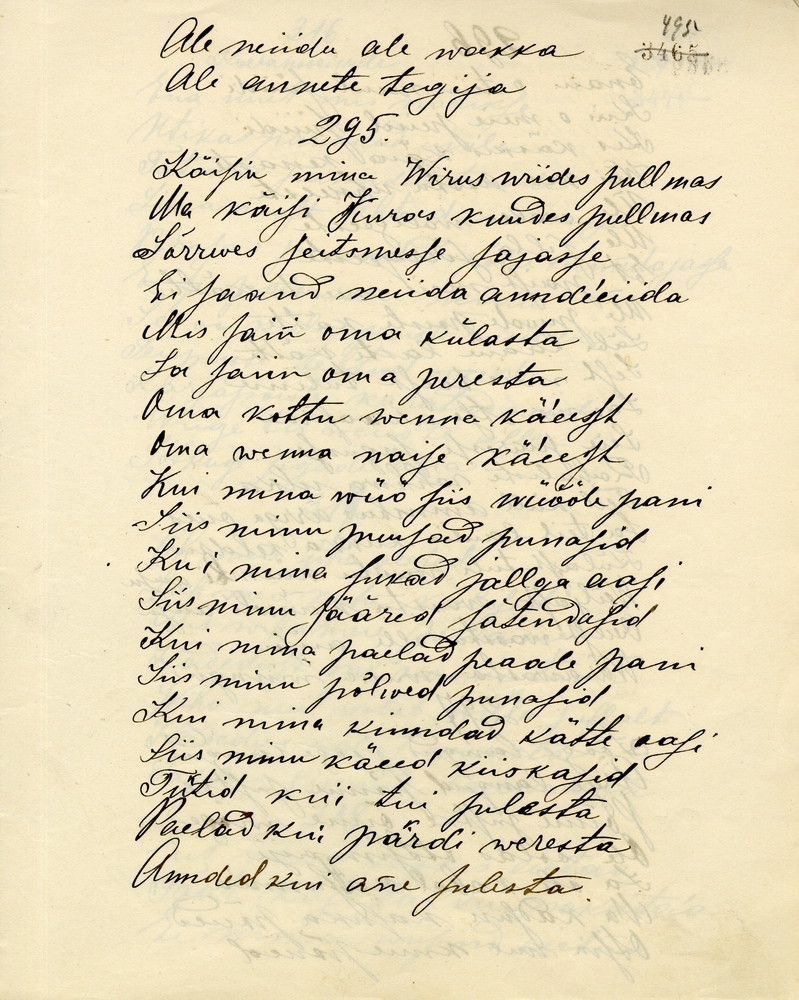 495.
3465
Ale neiidu ale wakka
Ale annete tegija
295.
Käisin mina Wirus wiides pullmas
Ma käisi Kuras kuudes pullmas
Sõrwes seitsmesse sajasse
Ei saand neiida anndeeiida
Mis sain oma külasta
Sa sain oma peresta
Oma kottu wenna käeest
Oma wenna naise käeest
Kui mina wüö siis wüööle pani
Siis minu puusad punasid
Kui mina sukad jallga aasi
Siis minu sääred sätendasid
Kui mina paelad peaale pani
Siis minu põlwed punasid
Kui mina kinndad kätte aasi
Siis minu käeed kiiskasid
Tütid kui tui sulesta
Paelad kui pärdi weresta
Annded kui ane sulesta.